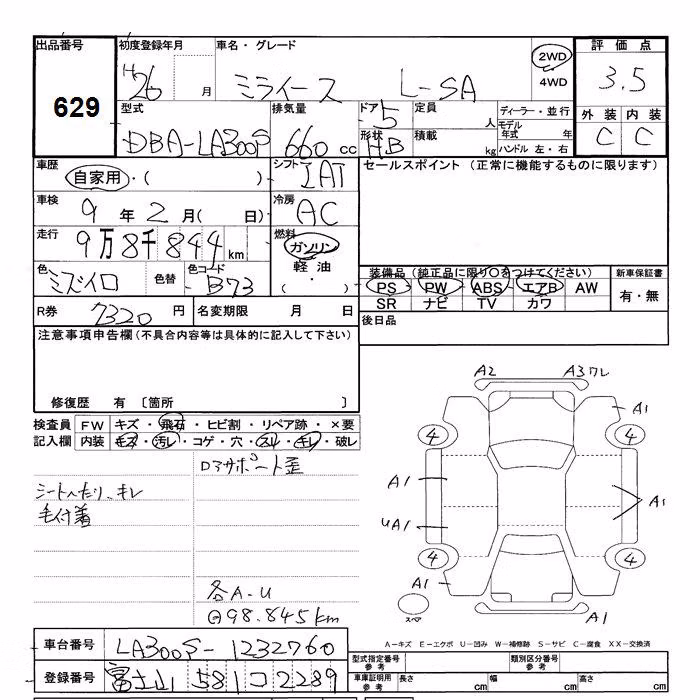 出品番号 初度登録年月 車名・グレード 評価点
629 H26 月 ミライース L-SA 2WD 3.5
4WD
型式 排気量 ドア 5 定員 人 ディーラー・並行 外装 内装
DBA-LA300S 660 cc 形状 HB 積載 kg モデル年式 年 C C
ハンドル 左・右
車歴 自家用・( ) シフト IAT セールスポイント (正常に機能するものに限ります)
車検 9 年 2 月( 日) 冷房 AC
走行 9万8千844 km 燃料 ガソリン
軽油・( )
色 ミズイロ 色替 色コード B73 装備品(純正品に限り○をつけてください) 新車保証書
PS PW ABS エアB AW 有・無
SR ナビ TV カワ
R券 7320 円 名変期限 月 日 後日品
注意事項申告欄(不具合内容等は具体的に記入して下さい)
修復歴 有 〔箇所 〕
検査員 FW キズ・飛石・ヒビ割・リペア跡・×要
記入欄 内装 キズ・汚レ・コゲ・穴・スレ・キレ・破レ
ドアサポート歪
シートへたり、キレ
毛付着
各A-U
98.845km
A2 A3ワレ
A1
4 4
A1 A1
UA1
4 4
A1
スペア A1
A-キズ E-エクボ U-凹み W-補修跡 S-サビ C-腐食 XX-交換済
車台番号 LA300S-1232760
型式指定番号 参考 類別区分番号 参考
登録番号 富士山 581 コ 2289
車庫証明用 参考 長さ cm 幅 cm 高さ cm